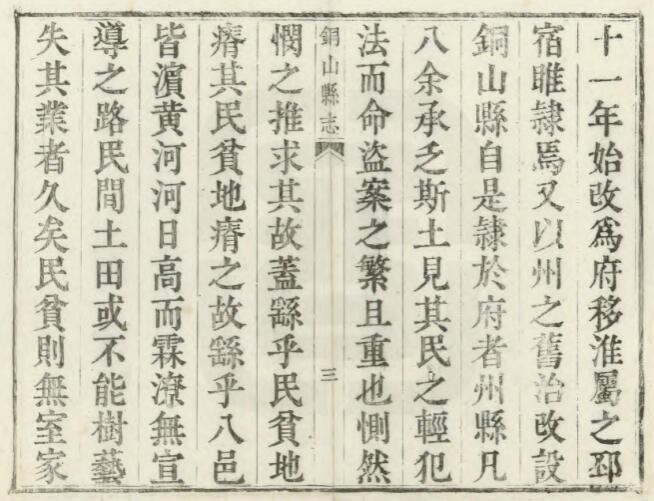 十一年始改爲府移淮屬之邳
宿睢隷焉又以州之舊治改設
銅山縣自是隷於府者州縣凡
八余承乏斯土見其民之輕犯
法而命盜案之繁且重也惻然
銅山縣志 三
憫之推求其故蓋繇乎民貧地
瘠其民貧地瘠之故繇乎八邑
皆濵黄河河日高而霖潦無宣
導之路民間土田或不能樹藝
失其業者久矣民貧則無室家